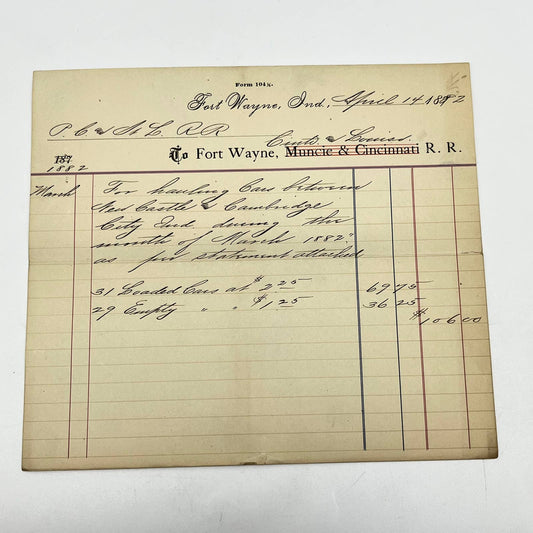 Form 104½.
Fort Wayne, Ind., April 14 1882
P. C & St L. R R
Cinti & Louisv.
187
To Fort Wayne, Muncie & Cincinnati R. R.
1882
March For hauling Cars between
New Castle & Cambridge
City Ind. during the
month of March 1882.
as per statement attached
31 Loaded Cars at $2 25 69 75
29 Empty " " $1 25 36 25
$106 00